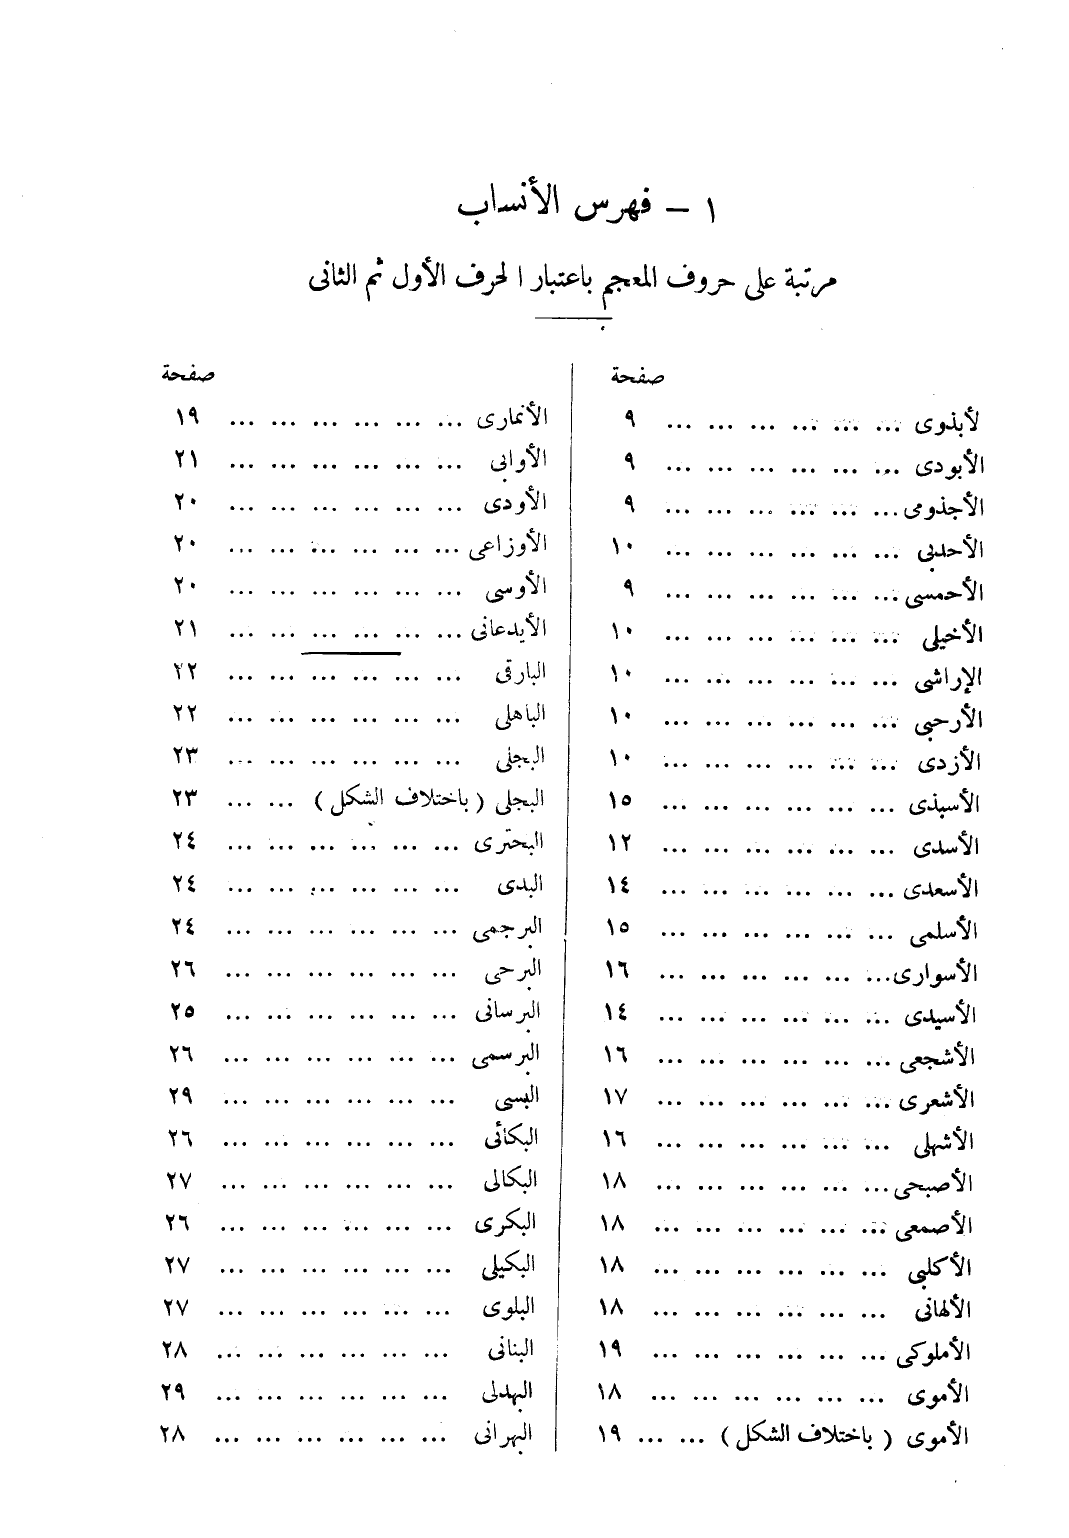 ١ – فهرس الأنساب
مرتبة على حروف المعجم باعتبار الحرف الأول ثم الثانى
صفحة
لأبذوى ... ... ... ... ... ... ٩
الأبودى ... ... ... ... ... ... ٩
الأجذومى ... ... ... ... ... ... ٩
الأحدبى ... ... ... ... ... ... ١٠
الأحمسى ... ... ... ... ... ... ٩
الأخيلى ... ... ... ... ... ... ١٠
الإراشى ... ... ... ... ... ... ١٠
الأرحبى ... ... ... ... ... ... ١٠
الأزدى ... ... ... ... ... ... ١٠
الأسبذى ... ... ... ... ... ... ١٥
الأسدى ... ... ... ... ... ... ١٢
الأسعدى ... ... ... ... ... ... ١٤
الأسلمى ... ... ... ... ... ... ١٥
الأسوارى ... ... ... ... ... ... ١٦
الأسيدى ... ... ... ... ... ... ١٤
الأشجعى ... ... ... ... ... ... ١٦
الأشعرى ... ... ... ... ... ... ١٧
الأشهلى ... ... ... ... ... ... ١٦
الأصبحى ... ... ... ... ... ... ١٨
الأصمعى ... ... ... ... ... ... ١٨
الأكلبى ... ... ... ... ... ... ١٨
الألهانى ... ... ... ... ... ... ١٨
الأملوكى ... ... ... ... ... ... ١٩
الأموى ... ... ... ... ... ... ١٨
الأموى ( باختلاف الشكل ) ... ... ١٩
صفحة
الأنمارى ... ... ... ... ... ... ١٩
الأوابى ... ... ... ... ... ... ٢١
الأودى ... ... ... ... ... ... ٢٠
الأوزاعى ... ... ... ... ... ... ٢٠
الأوسى ... ... ... ... ... ... ٢٠
الأيدعانى ... ... ... ... ... ... ٢١
البارقى ... ... ... ... ... ... ٢٢
الباهلى ... ... ... ... ... ... ٢٢
البجلى ... ... ... ... ... ... ٢٣
البجلى ( باختلاف الشكل ) ... ... ٢٣
البحترى ... ... ... ... ... ... ٢٤
البدى ... ... ... ... ... ... ٢٤
البرجمى ... ... ... ... ... ... ٢٤
البرحى ... ... ... ... ... ... ٢٦
البرسانى ... ... ... ... ... ... ٢٥
البرسمى ... ... ... ... ... ... ٢٦
البسى ... ... ... ... ... ... ٢٩
البكائى ... ... ... ... ... ... ٢٦
البكالى ... ... ... ... ... ... ٢٧
البكرى ... ... ... ... ... ... ٢٦
البكيلى ... ... ... ... ... ... ٢٧
البلوى ... ... ... ... ... ... ٢٧
البنانى ... ... ... ... ... ... ٢٨
البهدلى ... ... ... ... ... ... ٢٩
البهرانى ... ... ... ... ... ... ٢٨